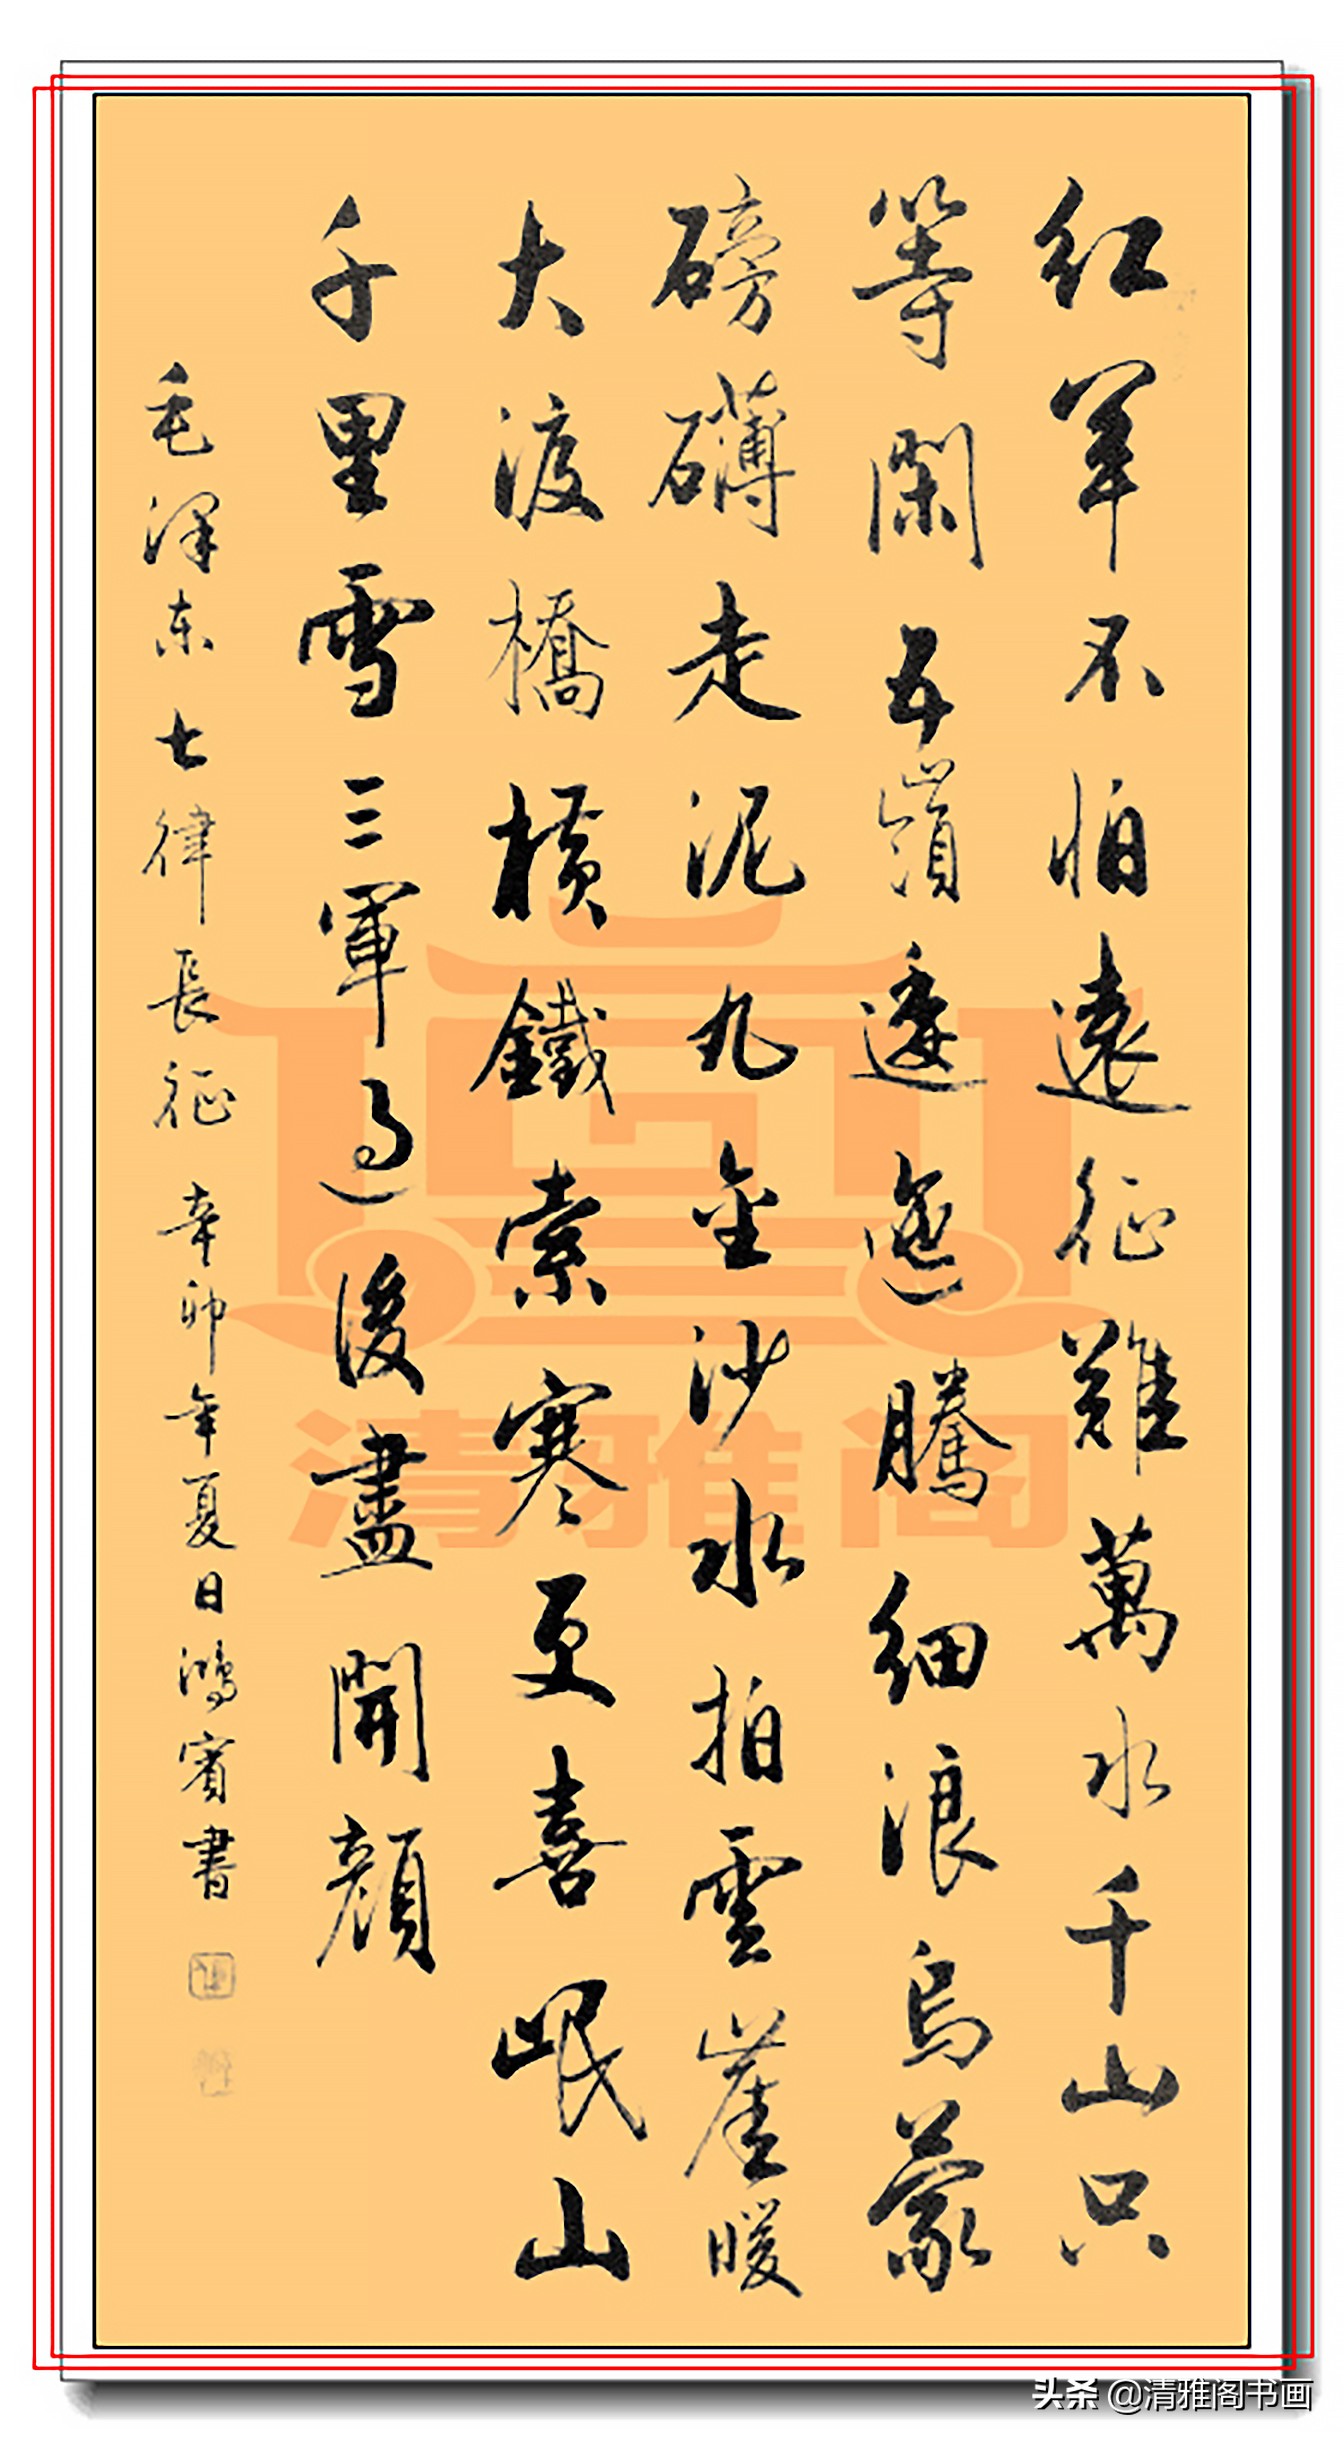 红军不怕遠征難萬水千山只
等閑五嶺逶迤騰細浪烏蒙
磅礴走泥丸金沙水拍雲崖暖
大渡橋横鐵索寒更喜岷山
千里雪三軍過後盡開顔
毛泽东七律長征 辛卯年夏日鴻賓書
清雅阁
头条 @清雅阁书画